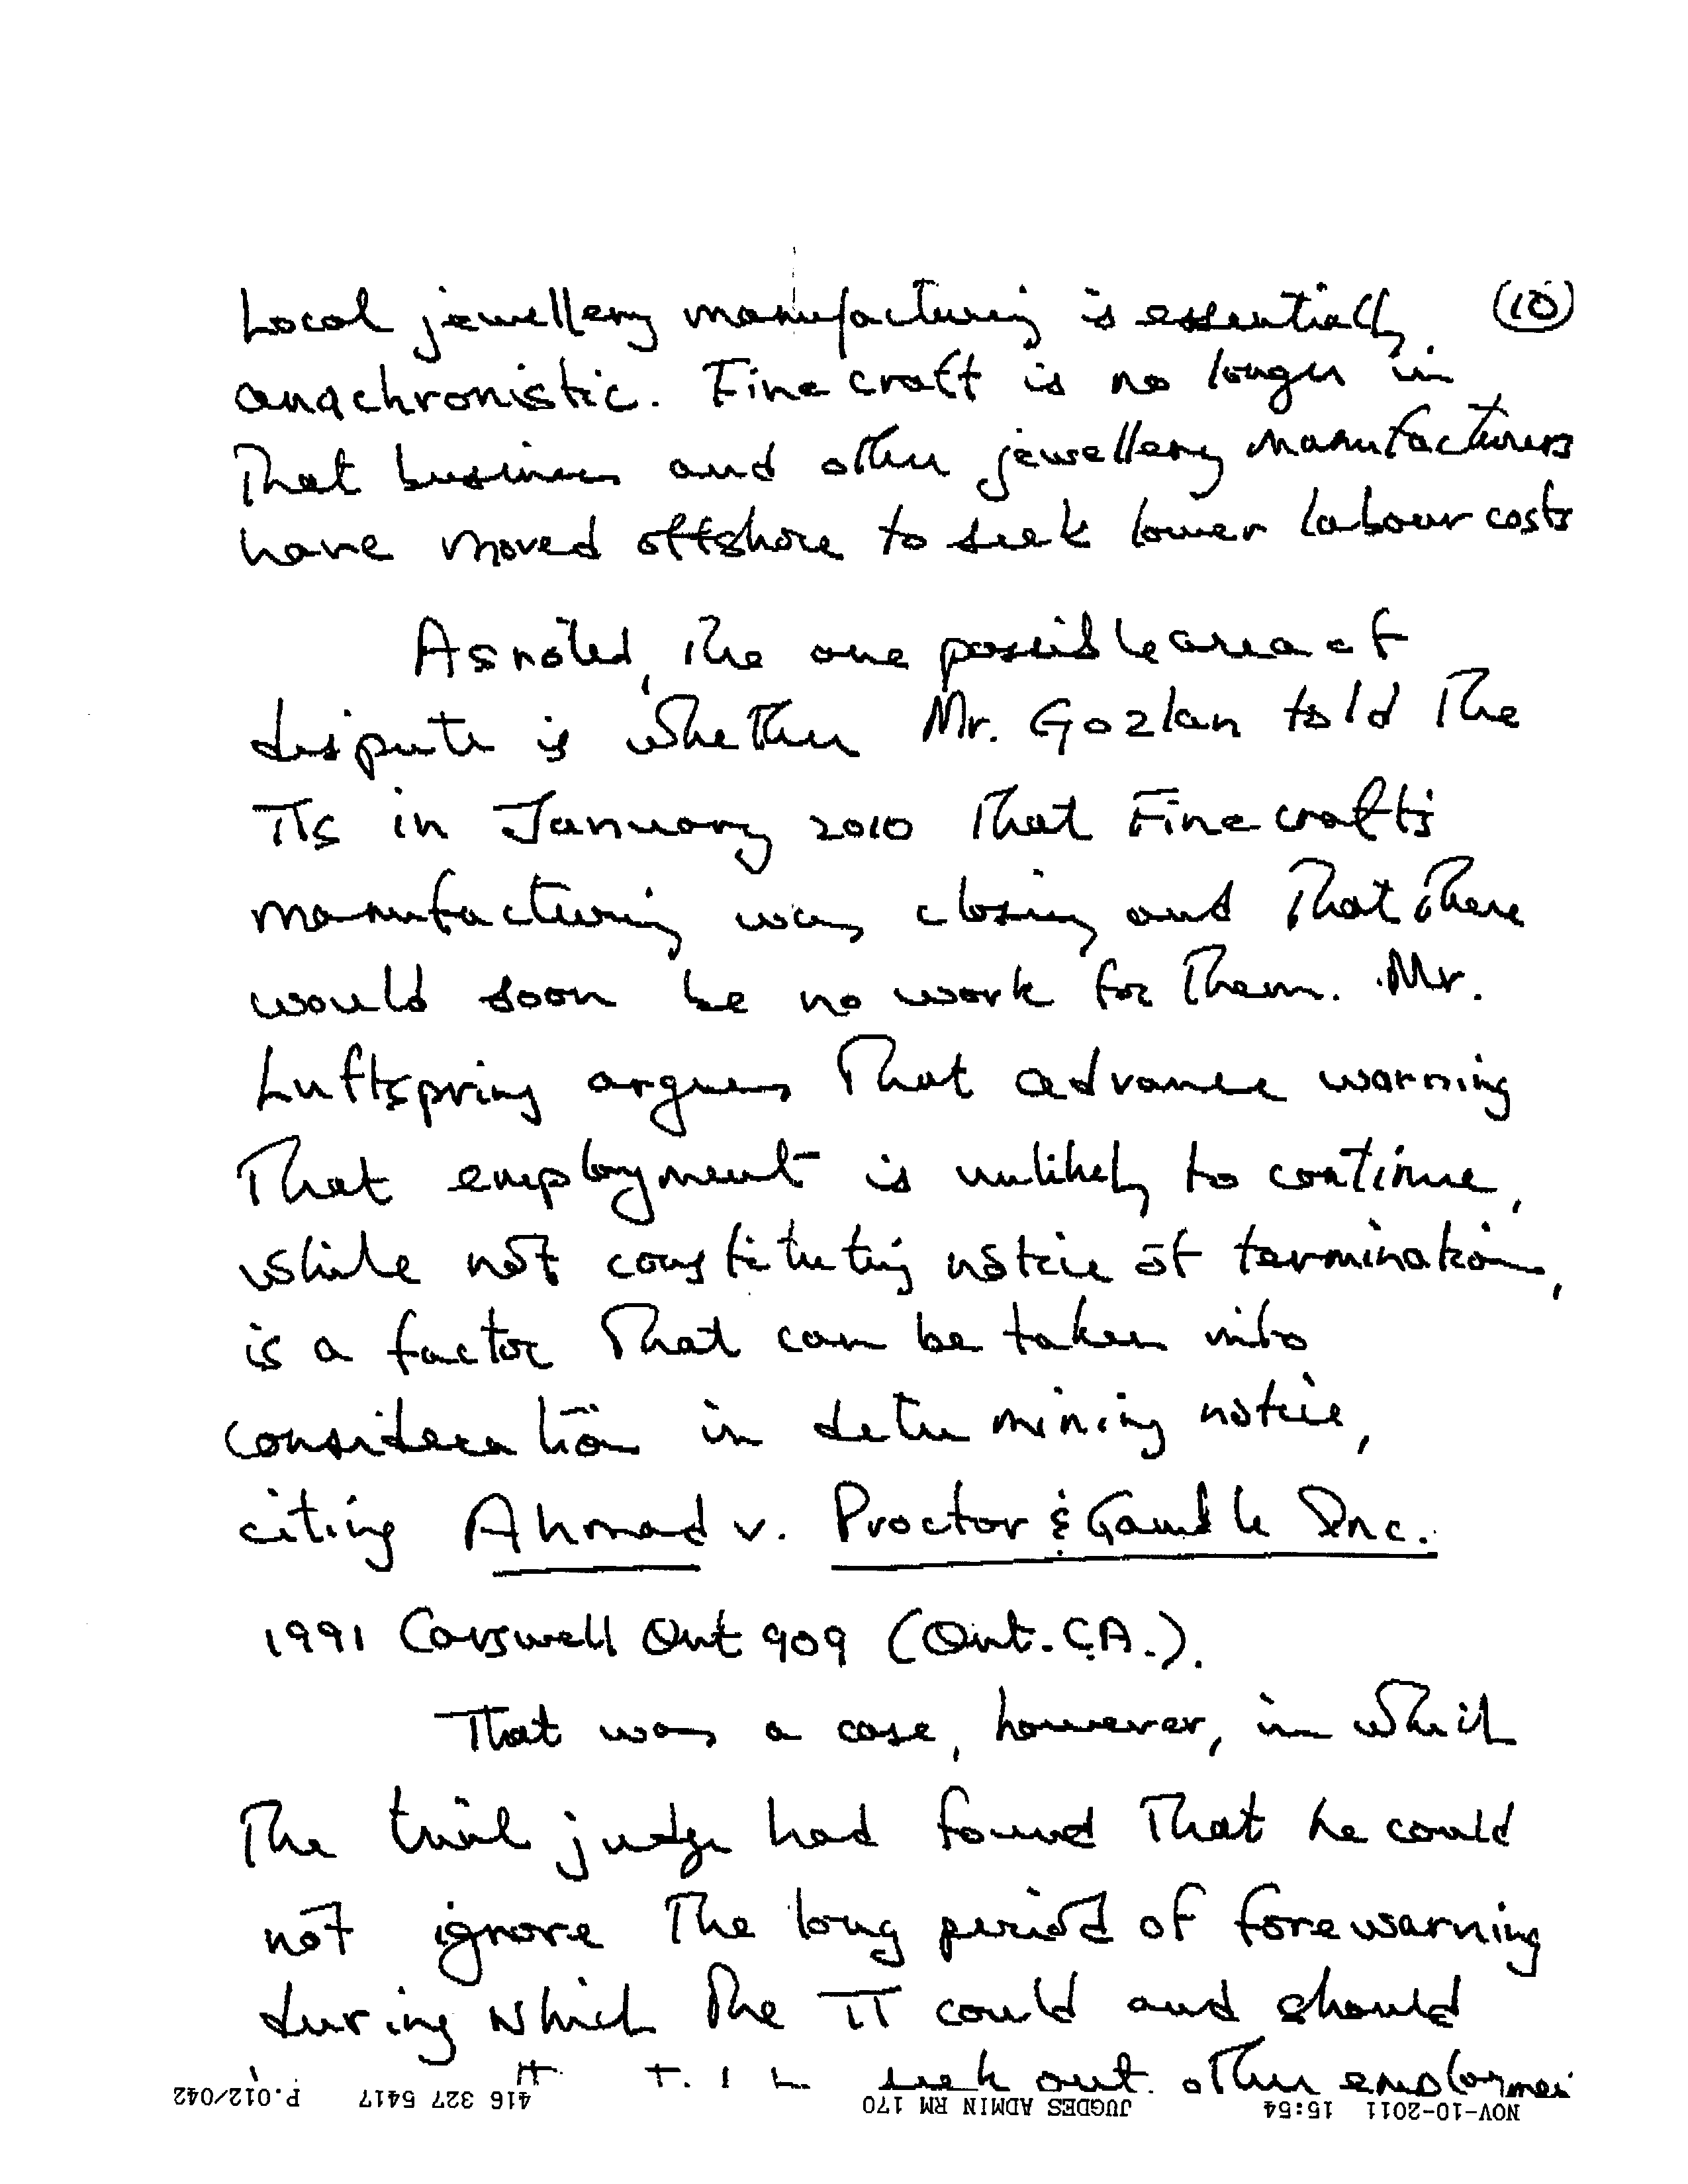 Local jewellery manufacturing is essentially (10)
anachronistic. Finecraft is no longer in
that business and other jewellery manufacturers
have moved offshore to seek lower labour costs
As noted, the one possible area of
dispute is whether Mr. Gozlan told the
πs in January 2010 that Finecraft's
manufacturing was closing and that there
would soon be no work for them. Mr.
Luftspring argues that advance warning
that employment is unlikely to continue,
while not constituting notice of termination,
is a factor that can be taken into
consideration in determining notice,
citing Ahmad v. Proctor & Gamble Inc.
1991 Carswell Ont 909 (Ont. C.A.).
That was a case, however, in which
the trial judge had found that he could
not ignore the long period of forewarning
during which the π could and should
seek out other employmen
NOV-10-2011 15:54 JUGDES ADMIN RM 170 416 327 5417 P.012/042